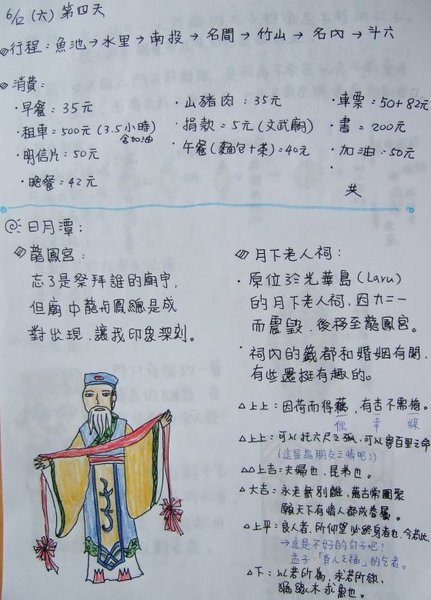 6/2 (六) 第四天
行程：魚池→水里→南投→名間→竹山→名內→斗六
消費：
・早餐：35元
・租車：500元(3.5小時)
含加油
・明信片：50元
・晚餐：42元
・山豬肉：35元
・捐款：5元(文武廟)
・午餐(麵包+茶)：40元
・車票：50+82元
・書：200元
・加油：50元
共
日月潭：
龍鳳宮：
忘了是祭拜誰的廟宇，
但廟中龍與鳳總是成
對出現，讓我印象深刻。
月下老人祠：
・原位於光華島(Laru)
的月下老人祠，因九二一
而震毀，後移至龍鳳宮。
・祠內的籤都和婚姻有關，
有些還挺有趣的。
△上上：因荷而得藕，有杏不需梅。
偶 幸 媒
△上上：可以托六尺之孤，可以寄百里之命
(這是指朋友之情吧！)
△△上吉：夫婦也，昆弟也。
△大吉：永老無別離，萬古常團聚
願天下有情人都成眷屬。
△上平：良人者，所仰望而終身者也，今若此。
→這是不好的句子吧！
孟子：「齊人之福」的乞者。
△下：以若所為，求若所欲，
猶緣木求魚也。